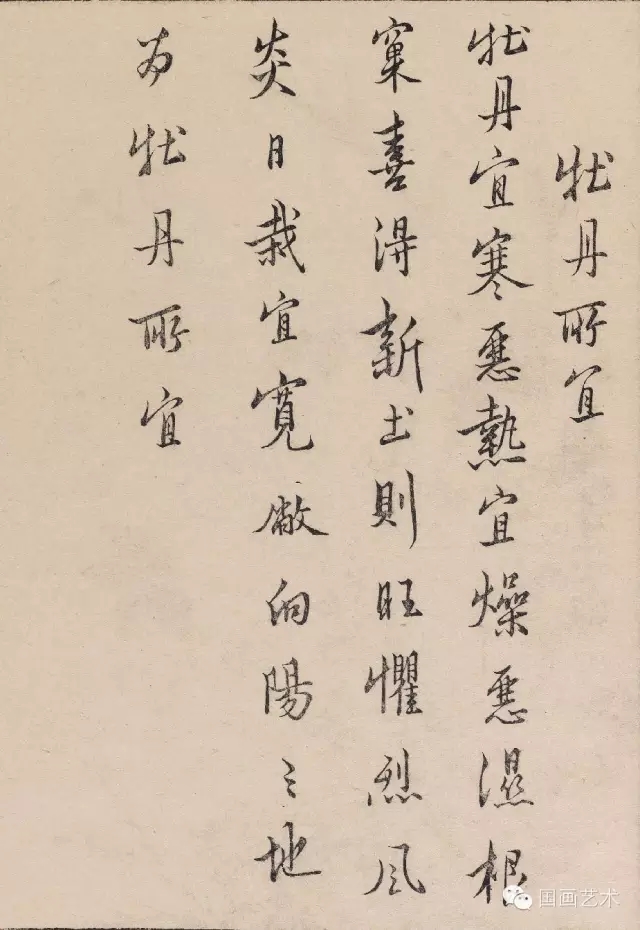 牡丹所宜
牡丹宜寒惡熱宜燥惡濕根
窠喜得新土則旺懼烈風
炎日栽宜寬敞向陽之地
為牡丹所宜
国画艺术